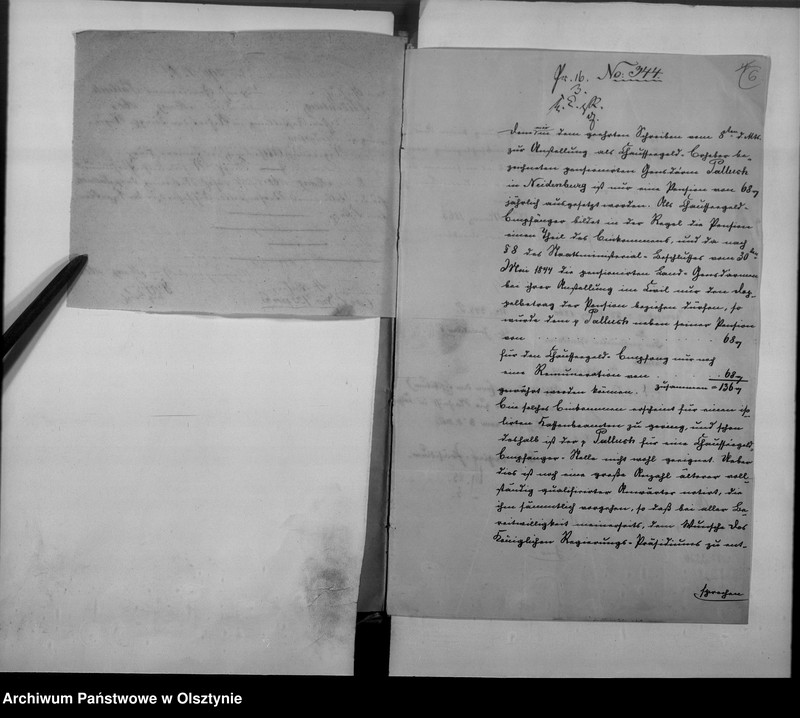 No: 344.
6
Dem in dem geehrten Schreiben vom 8ten d. Mts.
zur Anstellung als Chausseegeld-Erheber be-
zeichneten pensionirten Gensdarm Palluck
in Neidenburg ist nur eine Pension von 68
jährlich ausgesetzt worden. Als Chausseegeld-
Empfänger bildet in der Regel die Pension
einen Theil des Einkommens, und da nach
§ 8 des Staatsministerial-Beschlußes vom 30ten
Mai 1844 die pensionirten Land-Gensdarmen
bei ihrer Anstellung im Civil nur den Dop-
pelbetrag der Pension beziehen dürfen, so
würde dem p Palluck neben seiner Pension
von 68
für den Chausseegeld-Empfang nur noch
eine Remuneration von 68
gewährt werden können, zusammen = 136
Ein solches Einkommen erscheint für einen iso-
lirten Kassenbeamten zu gering, und schon
deshalb ist der p Palluck für eine Chausseegeld-
Empfänger-Stelle nicht wohl geeignet. Ueber
dies ist noch eine große Anzahl älterer voll-
ständig qualificirter Anwärter notirt, die
ihm sämmtlich vorgehen, so daß bei aller Be-
reitwilligkeit meinerseits, dem Wunsche des
Königlichen Regierungs-Präsidiums zu ent-
sprechen
Archiwum Państwowe w Olsztynie